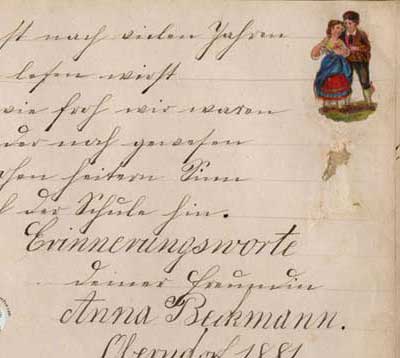 st nach vielen Jahren
lesen wirst
wie froh wir waren
der noch gewesen
chen heitern Sinn
der Schule hin.
Erinnerungsworte
deiner Freundin
Anna Beckmann.
Oberndorf 1881